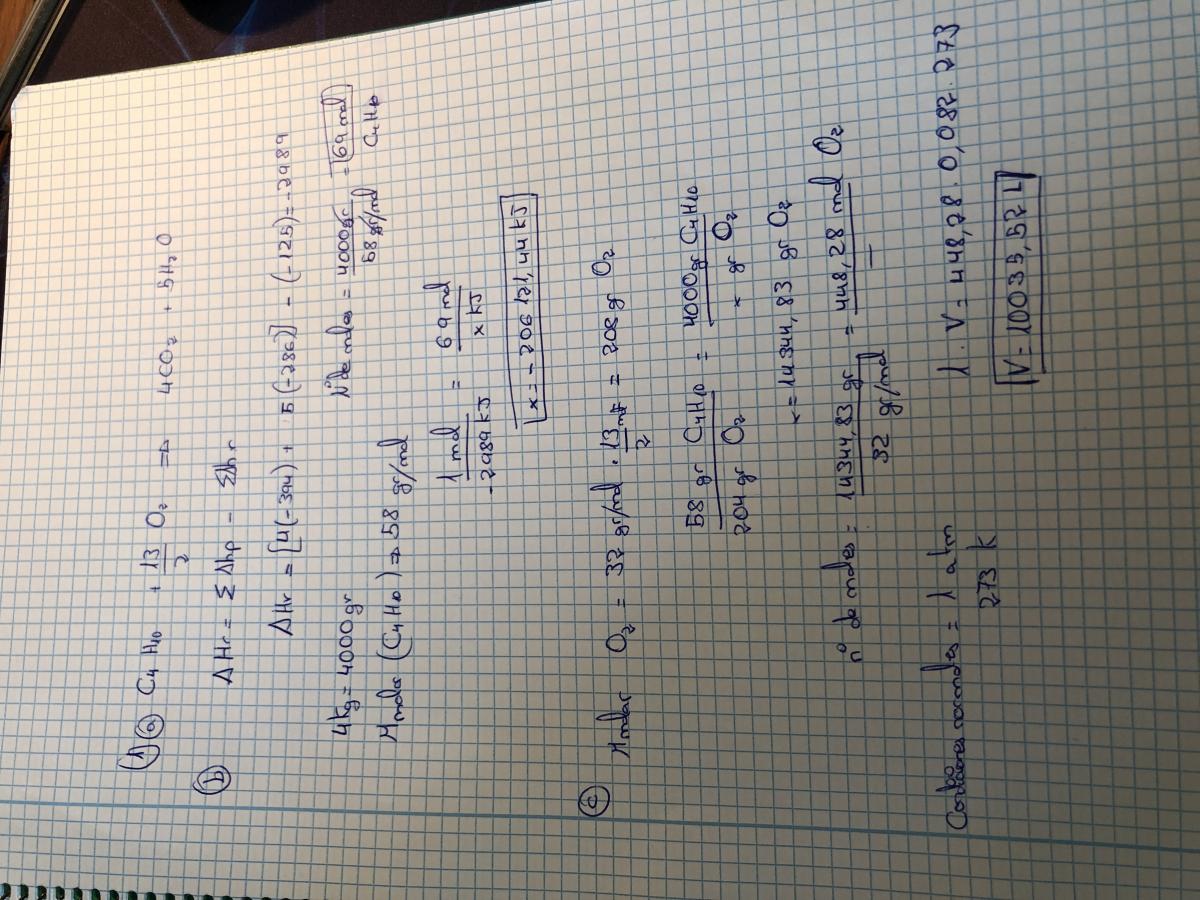 ① ⓐ C4 H10 + 13/2 O2 ⇒ 4CO2 + 5H2O
ⓑ ΔHr = Σ Δhp - Σhr
ΔHr = [4(-394) + 5(-286)] - (-125) = -2989
4kg = 4000gr
Nº de moles = 4000gr / 58 gr/mol = 69 mol C4H10
Mmolar (C4H10) ⇒ 58 gr/mol
1 mol / -2989 KJ = 69 mol / x KJ
x = -206 121,44 KJ
ⓒ Mmolar O2 = 32 gr/mol · 13/2 mol = 208 gr O2
58 gr C4H10 / 204 gr O2 = 4000gr C4H10 / x gr O2
x = 14344,83 gr O2
nº de moles = 14344,83 gr / 32 gr/mol = 448,28 mol O2
normales = 1 atm
273 K
1 · V = 448,28 · 0,082 · 273
V = 10035,52 L